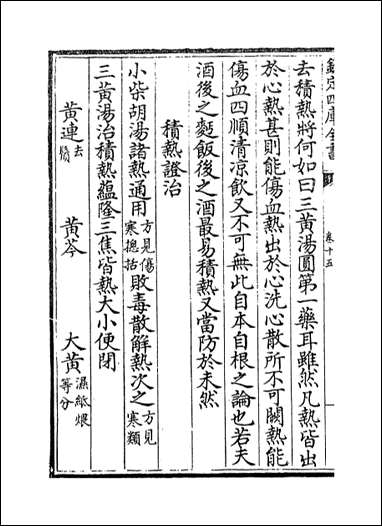 欽定四庫全書
卷十五
去積熱將何如曰三黃湯圓第一藥耳雖然凡熱皆出
於心熱甚則能傷血熱出於心洗心散所不可闕熱能
傷血四順清凉飲又不可無此自本自根之論也若夫
酒後之麫飯後之酒最易積熱又當防於未然
積熱證治
小柴胡湯諸熱通用方見傷寒摠括敗毒散解熱次之方見寒類
三黃湯治積熱蘊隆三焦皆熱大小便閉
黃連去鬚 黃芩 大黃濕紙煨等分